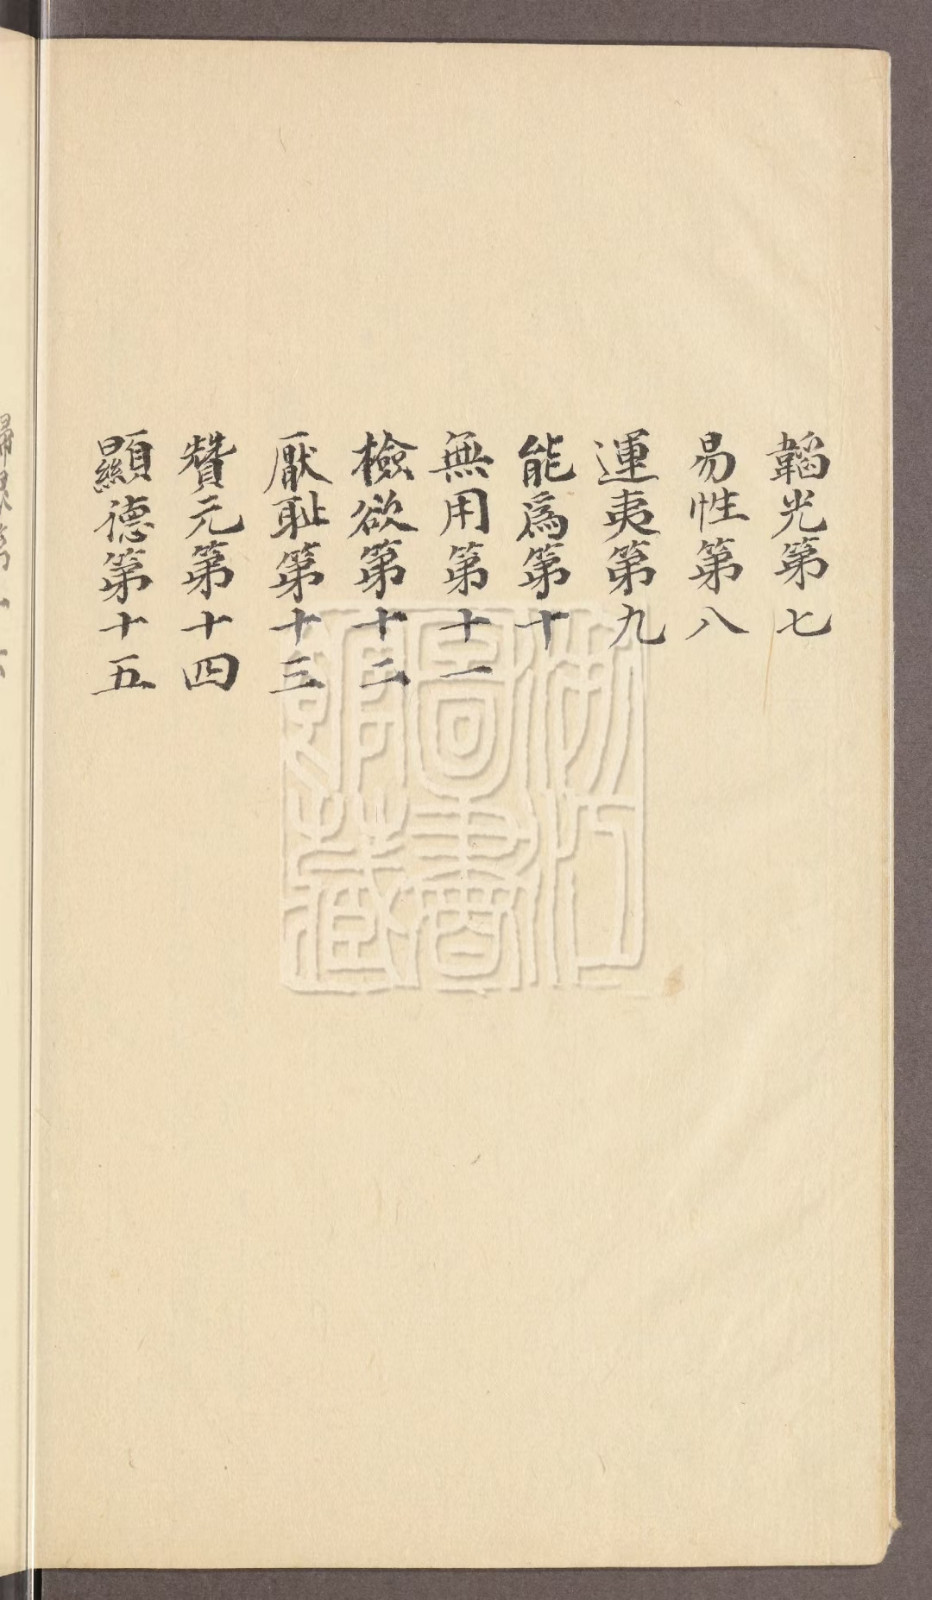 韜光第七
易性第八
運夷第九
能爲第十
無用第十一
檢欲第十二
厭恥第十三
贊元第十四
顯德第十五
浙江
圖書
館藏